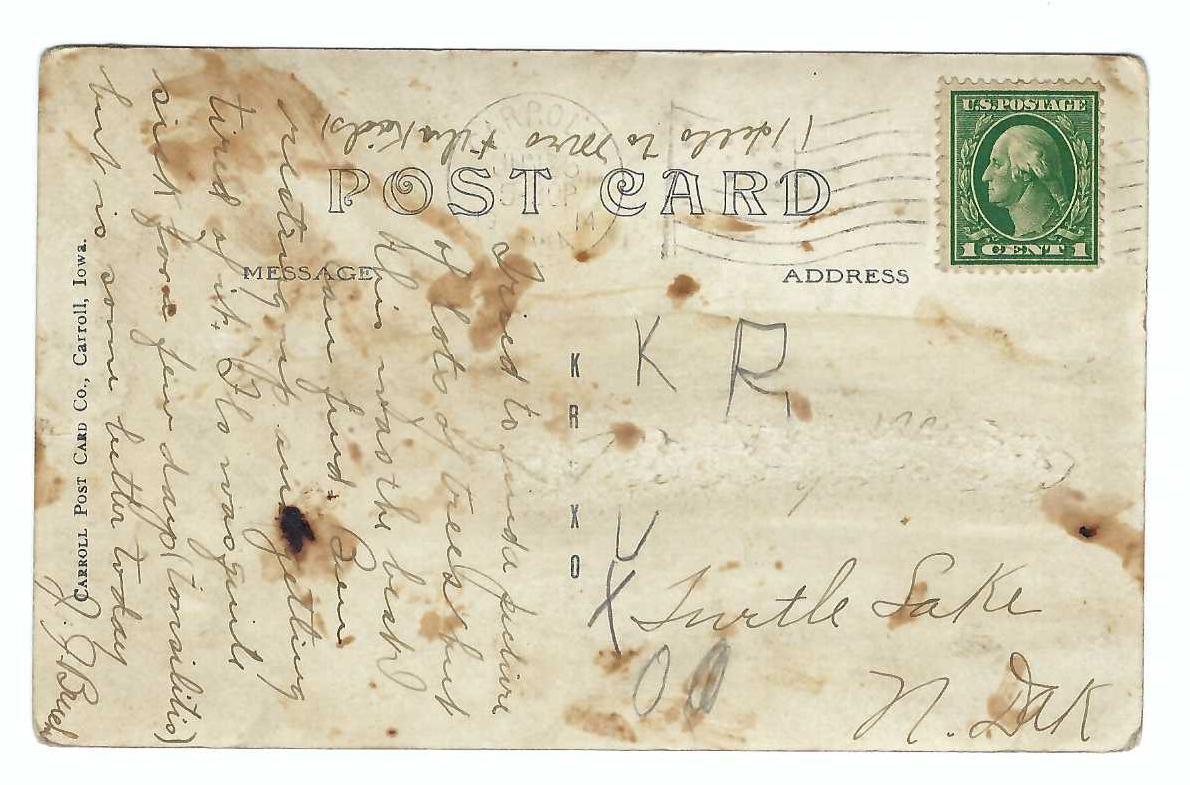 POST CARD
MESSAGE
ADDRESS
U.S. POSTAGE
1 CENT 1
CARROLL POST CARD CO., Carroll, Iowa.
KRUXO
K R U X O
Tried to find a picture
of lots of trees but
this was the best I
can find. Been
resting up am getting
tired of it. Flo was quite
sick for a few days (tonsilitis)
but is some better today
Hello to Mrs + the Kids
Turtle Lake
N. Dak